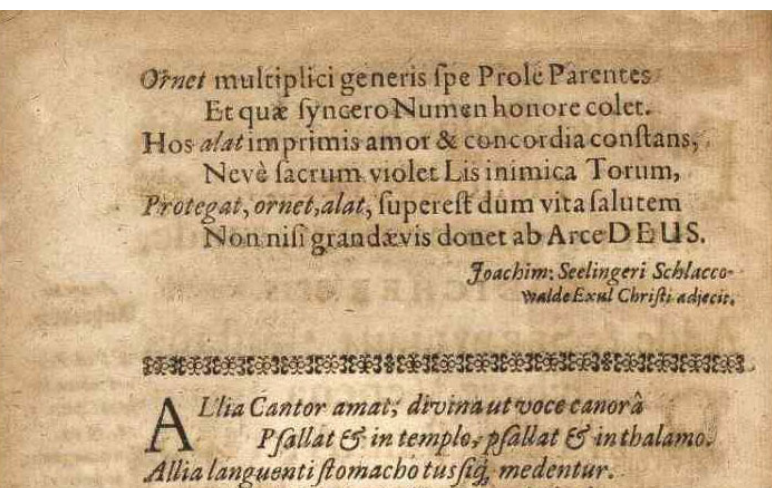 Ornet multiplici generis ſpe Prole Parentes
Et quæ ſyncero Numen honore colet.
Hos alat imprimis amor & concordia conſtans,
Nevè ſacrum violet Lis inimica Torum,
Protegat, ornet, alat, ſupereſt dum vita ſalutem
Non niſi grandævis donet ab Arce DEUS.
Joachim: Seelingeri Schlacco-
walde Exul Chriſti adjecit.
ALlia Cantor amat; divina ut voce canorâ
Pſallat & in templo, pſallat & in thalamo.
Allia languenti ſtomacho tuſſiq; medentur.